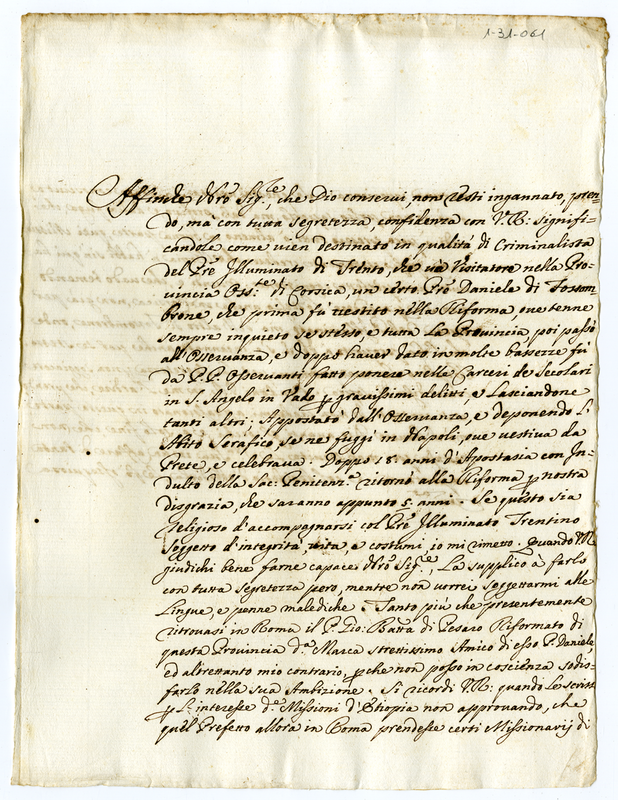 1-31-061
Affinche Nr̃o Sig.re, che Dio conservi, non resti ingannato, pren-
do, mà con tutta segretezza, confidenza con V. R: signifi-
candole come vien destinato in qualità di Criminalista
del Prẽ Illuminato di Trento, che và Visitatore nella Pro-
vincia Oss.te di Corsica, un certo Prẽ Daniele di Fossom
brone, che prima fù vestito nella Riforma, ove tenne
sempre inquieto se stesso, e tutta la Provincia, poi passò
all'Osservanza, e doppo haver dato in molte bassezze fù
da P.P. Osservanti fatto ponere nella Carceri de Secolari
in S. Angelo in Vado ꝑ gravissimi delitti, e lasciandone
tanti altri; Appostatò dall'Osservanza, e deponendo l'
Abito Serafico, se ne fuggì in Napoli, ove vestiva da
Prete, e celebrava. Doppo 18. anni d'Apostasia con In-
dulto della Sac: Penitenz.a ritornò alla Riforma ꝑ nostra
disgrazia, che saranno appunto 5. anni. Se questo sia
Religioso d'accompagnarsi col Prẽ Illuminato Trentino
soggetto d'integrità, vita, e costumi, io mi rimetto. Quando V.R.
giudichi bene farne capace Nr̃o Sig.re, La supplico à farlo
con tutta segretezza però, mentre non vorrei soggettarmi alle
Lingue, e penne malediche. Tanto più che presentemente
ritrovasi in Roma il P. Gio: Batt̃a di Pesaro Riformato di
questa Provincia d.a Marca strettissimo Amico di esso P. Daniele,
ed altrettanto mio contrario, ꝑche non posso in coscienza sodis-
farlo nella sua Ambizione. Si ricordi V.R: quando le scrissi
ꝑ l'interesse d.e Missioni d'Etiopia non approvando, che
quel Prefetto allora in Roma prendesse certi Missionarij di